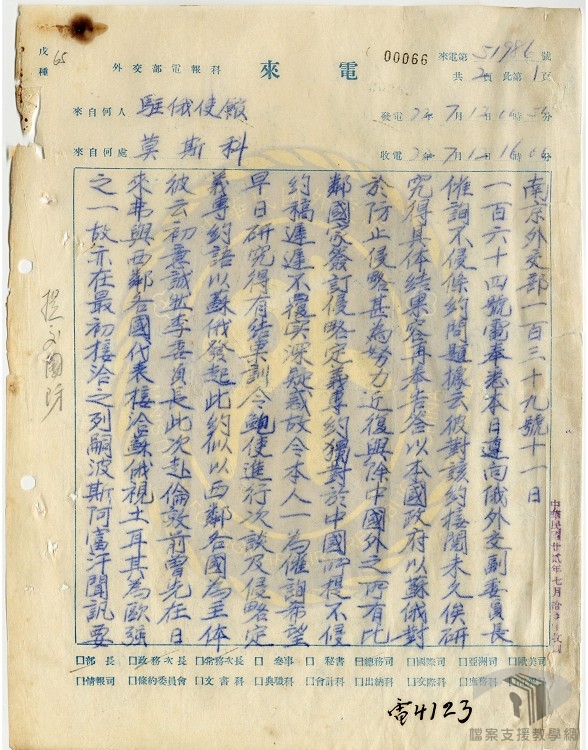 戌種 65
外交部電報科
來電
00066
來電第51986號
共2頁此第1頁
來自何人 駐俄使館
發電 22年7月12日
來自何處 莫斯科
收電 22年7月12日16時
南京外交部一百三十九號十一日
一百六十四號電奉悉本日遵向俄外交副委員長
催詢不侵條約問題據云彼對該約擱閣未久俟研
究得具體結果容再奉告答以本國政府以蘇俄對
於防止侵略甚為努力近復與除中國外之所有比
鄰國家簽訂侵略定義專約獨對於中國所提不侵
約稿遲遲不覆實深疑惑故令本人一為催詢希望
早日研究得有結果訓令鮑使進行次談及侵略定
義專約語以蘇俄發起此約似以西鄰各國為主体
彼云初意誠然李委員長此次赴倫敦前曾先在日
來弗與西鄰各國代表接洽蘇俄視土耳其為歐強
之一故亦在最初接洽之列嗣波斯阿富汗聞訊要
中華民國廿弍年七月拾
□部長 □政務次長 □常務次長 □參事 □秘書 □總務司 □國際司 □亞洲司 □歐美司
□情報司 □條約委員會 □文書科 □典職科 □會計科 □出納科 □交際科 □庶務科
電4123
檔案支援教學網